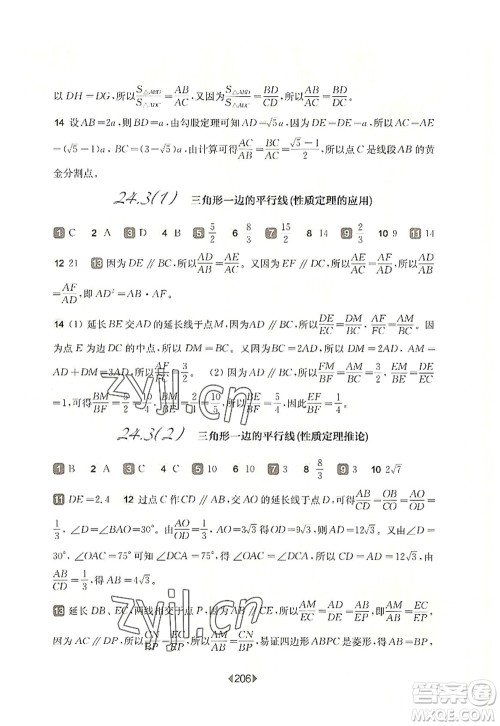 以 DH=DG, 所以 S△ABD/S△ADC=AB/AC, 所以 S△ABD/S△ADC=BD/DC, 所以 AB/AC=BD/DC.
14 设 AB=2a, 所以 BD=a, 由勾股定理可知 AD=√5 a, 因为 DE=DE=a, 所以 AC=AE
=(√5-1)a, 所以 BC=(3-√5)a, 由计算可得 AC/AB=BC/AC=(√5-1)/2, 所以点 C 是线段 AB 的黄
金分割点.
24.3(1) 三角形一边的平行线(性质定理的应用)
1 C 2 A 3 D 4 B 5 5/2 6 5/2 7 5/2 8 9/4 9 4/3 10 9 11 14
12 21 13 因为 DE∥BC, 所以 AD/AB=AE/AC, 又因为 EF∥DC, 所以 AF/AD=AE/AC, 所以 AD/AB=
AF/AD, 即 AD²=AB·AF.
14 (1) 延长 BE 交 AD 的延长线于点 M, 因为 AD∥BC, 所以 DE/EC=DM/BC, AF/FC=AM/BC. 因
为点 E 为边 DC 的中点, 所以 DM=BC. 因为 BC=2AD, 所以 DM=2AD, 所以 AM=
AD+DM=3AD, 所以 AF/FC=3/2. (2) 因为 AD∥BC, 所以 FM/BF=AM/BC=3/2, EM/BE=DM/BC
=1, 可得 BM/BF=5/2, BM/BE=2, 所以 EF/BE=
24.3(2) 三角形一边的平行线(性质定理推论)
1 B 2 A 3 C 4 C 5 10 6 10 7 3 8 8/3 9 10 2√7
11 DE=2.4 12 过点 C 作 CD∥AB, 交 AO 的延长线于点 D, 可得 AB/CD=AO/OD=BO/CO=
1/3, ∠D=∠DAB=30°. 由 AO/OD=1/3, AO=3√3, 所以 DO=9√3, 所以 AD=12√3, 由
∠D=30°, ∠OAC=75°可得 ∠ACD=∠OAC=75°, 所以 CD=AD=12√3, 由
AB/CD=1/3, 可得 AB=4√3.
13 延长 DB、EC, 两线相交于点 P, 因为 BD∥AC, 所以 AM/BM=AC/BP, 因为 AB∥CE, 即
AB∥EP, 所以 CN/BN=EC/BP, 因为 AM/BM=CN/BN, 所以 AC=EC, 易证四边形 ABPC 是菱形, 得 AB=BP,
206